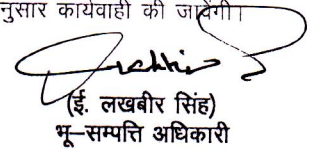 नुसार कार्यवाही की जावेंगी।
(ई. लखबीर सिंह)
भू-सम्पत्ति अधिकारी